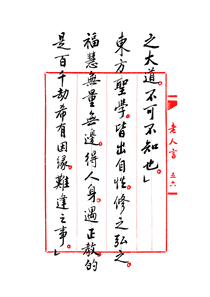 之大道。不可不知也。」
東方聖學。皆出自性。修之弘之。
福慧無量無邊。得人身。遇正教。的
是百千劫希有因緣。難逢之事。」
老人言 五六